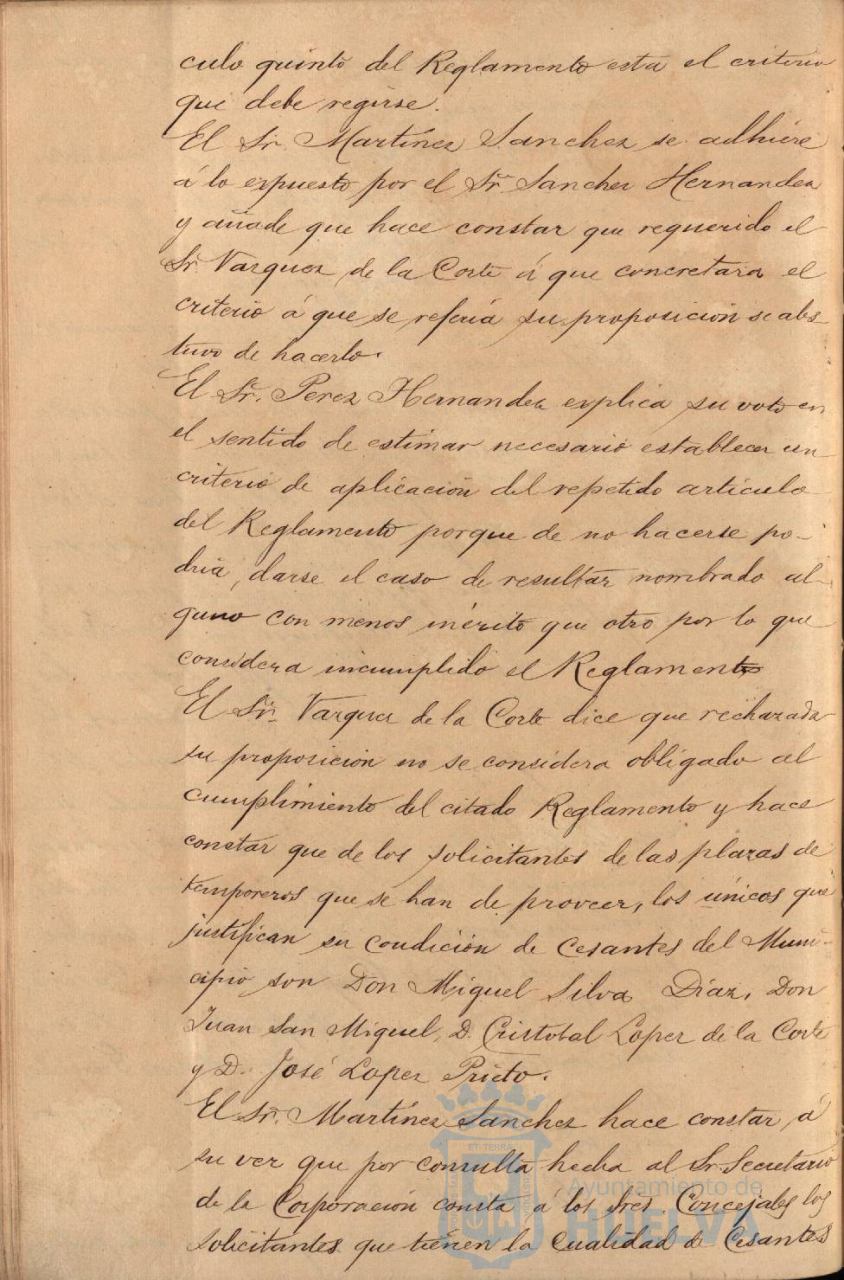 culo quinto del Reglamento esta el criterio
que debe regirse.
El Sr. Martínez Sanchez se adhiere
á lo expuesto por el Sr. Sanchez Hernandez
y añade que hace constar que requerido el
Sr. Vazquez de la Corte á que concretara el
criterio á que se referia su proposición se abs-
tuvo de hacerlo.
El Sr. Perez Hernandez explica su voto en
el sentido de estimar necesario establecer un
criterio de aplicación del repetido articulo
del Reglamento porque de no hacerse po-
dria, darse el caso de resultar nombrado al-
guno con menos mérito que otro por lo que
considera incumplido el Reglamento
El Sr. Vazquez de la Corte dice que rechazada
su proposición no se considera obligado al
cumplimiento del citado Reglamento y hace
constar que de los solicitantes de las plazas de
temporeros que se han de proveer, los únicos que
justifican su condición de Cesantes del Muni-
cipio son Don Miguel Silva Díaz, Don
Juan San Miguel, D. Cristobal Lopez de la Corte
y D. José Lopez Prieto.
El Sr. Martínez Sanchez hace constar á
su vez que por consulta hecha al Sr. Secretario
de la Corporación consta á los Sres. Concejales los
solicitantes que tienen la Cualidad de Cesantes
Ayuntamiento de
HUELVA